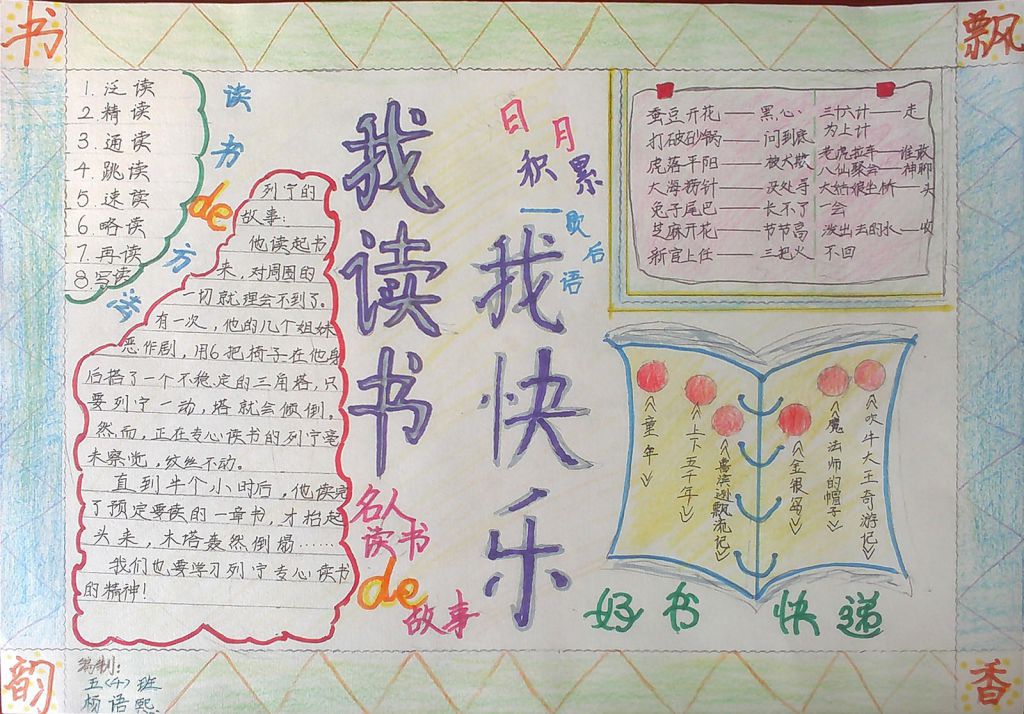 书
飘
韵
香
我读书
我快乐
1. 泛读
2 精读
3. 通读
4. 跳读
5 速读
6 略读
7. 再读
8.写读
读书de方法
列宁的
故事:
他读起书
来,对周围的
一切就理会不到了。
有一次,他的几个姐妹
恶作剧,用6把椅子在他身
后搭了一个不稳定的三角塔,只
要列宁一动,塔就会倾倒。
然而,正在专心读书的列宁毫
未察觉,纹丝不动。
直到半个小时后,他读完
了预定要读的一章书,才抬起
头来,木塔轰然倒塌……
我们也要学习列宁专心读书
的精神!
名人
读书
de
故事
日月
积累
—歇后语
蚕豆开花——黑心
打破砂锅——问到底
虎落平阳——被犬欺
大海捞针——没处寻
兔子尾巴——长不了
芝麻开花——节节高
新官上任——三把火
三十六计——走
为上计
老虎拉车——谁敢
八仙聚会——神聊
大姑娘坐轿——头
一会
泼出去的水——收
不回
《童年》
《上下五千年》
《鲁滨逊飘流记》
《金银岛》
《魔法师的帽子》
《吹牛大王奇游记》
好书快递
编制:
五〈4〉班
杨语熙